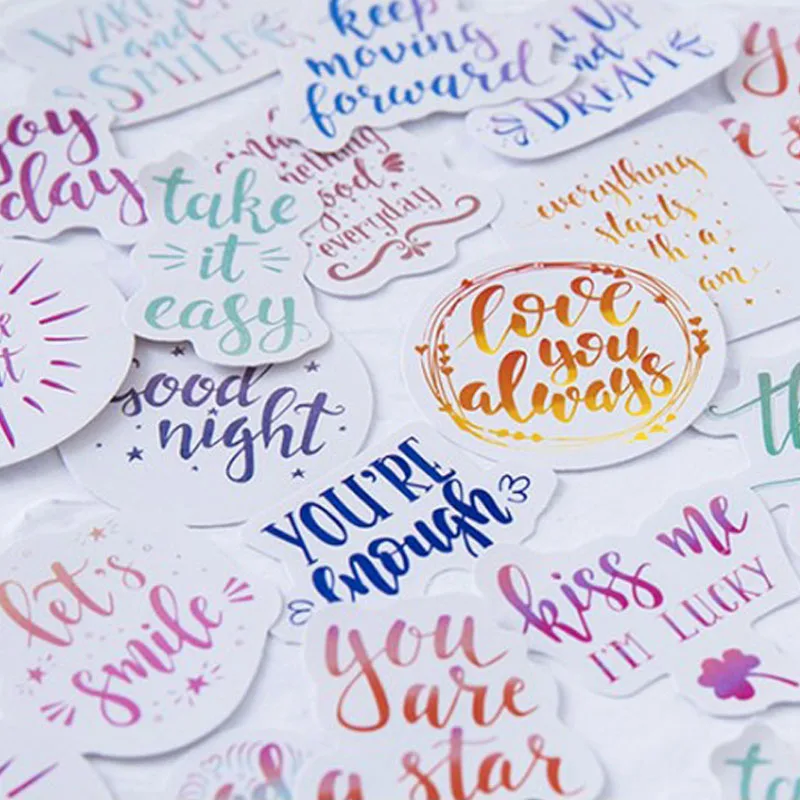 WAKE UP
and
SMILE
keep
moving
forward
UP
nd
DREAM
joy
day
take
it
easy
nething
ood
everyday
everything
starts
th a
am
love
you
always
good
night
YOU'RE
enough
let's
smile
kiss me
I'M LUCKY
you
are
a star
th
ta